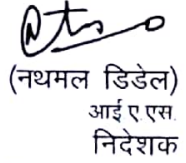 (नथमल डिडेल)
आई ए.एस.
निदेशक